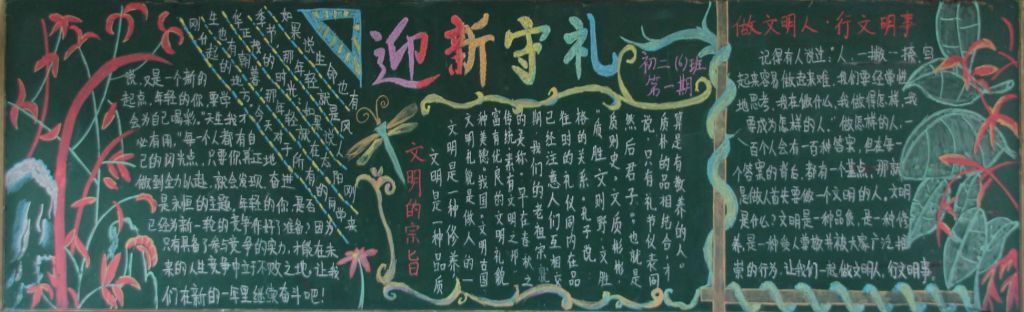 迎新守礼
初二(6)班
第一期
如果说生命也有风
说,又是一个新的
起点,年轻的你,要学
会为自己喝彩,"天生我才
必有用,"每一个人都有自
己的闪光点,只要你真正地
做到全力以赴,就会发现,奋进
是永恒的主题,年轻的你,是否
已经为新一轮的竞争作好了准备?因为
只有具备了参与竞争的实力,才能在未
来的人生竞争中立于不败之地,让我
们在新的一年里继续奋斗吧!
文明的宗旨
算是有教养的人。
质朴的品质相结合,才
说,只有礼节仪表同
然后君子。"也就是
质则史,文质彬彬,
"质胜文则野,文胜
格的关系。孔子说:
往时的礼仪同内在品
已经注意人们互相交
期,我们的老祖宗就
的美称。早在春秋之
传统,素有"文明之邦"
富有优良的文明礼貌
种美德。我国·文明古国,
文明礼貌是做人的一
文明是一种修养,
文明是一种品质
做文明人·行文明事
记得有人说过:"人,一撇一捺,写
起来容易做起来难,我们要经常性
地思考,我在做什么,我做得怎样,我
要成为怎样的人。"做怎样的人,一
百个人会有一百种答案,但在每一
个答案的背后,都有一个基点,那就
是做人首先要做一个文明的人。文明
是什么?文明是一种品质,是一种修
养,是一种受人尊敬并被大家广泛推
崇的行为,让我们一起做文明人,行文明事